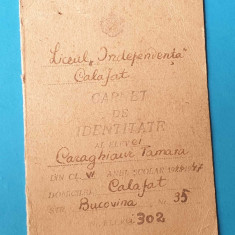 Liceul „Independența"
Calafat
CARNET
DE
IDENTITATE
AL ELEVEI
Caraghiaur Tamara
DIN CL. VI ANUL SCOLAR 1946-47
DOMICILIU Calafat
STR. Bucovina Nr. 35
302